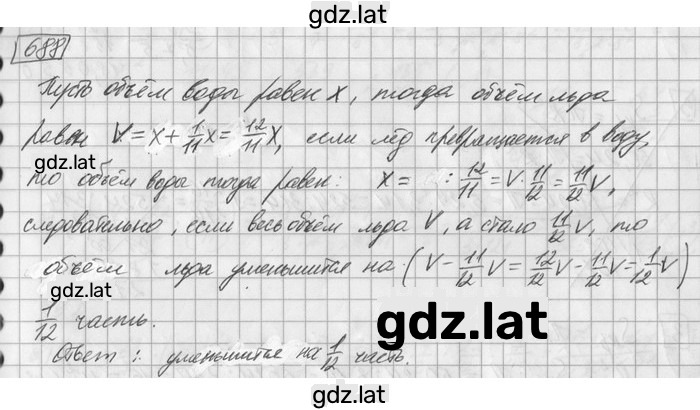 gdz.lat
688
Пусть объём воды равен x, тогда объём льда
равен V = x + 1/11 x = 12/11 x, если лёд превращается в воду,
gdz.lat
то объём воды тогда равен: x = : 12/11 = V · 11/12 = 11/12 V,
следовательно, если весь объём льда V, а стало 11/12 V, то
объём льда уменьшится на (V - 11/12 V = 12/12 V - 11/12 V = 1/12 V)
gdz.lat
1/12 часть.
gdz.lat
Ответ: уменьшится на 1/12 часть.
gdz.lat